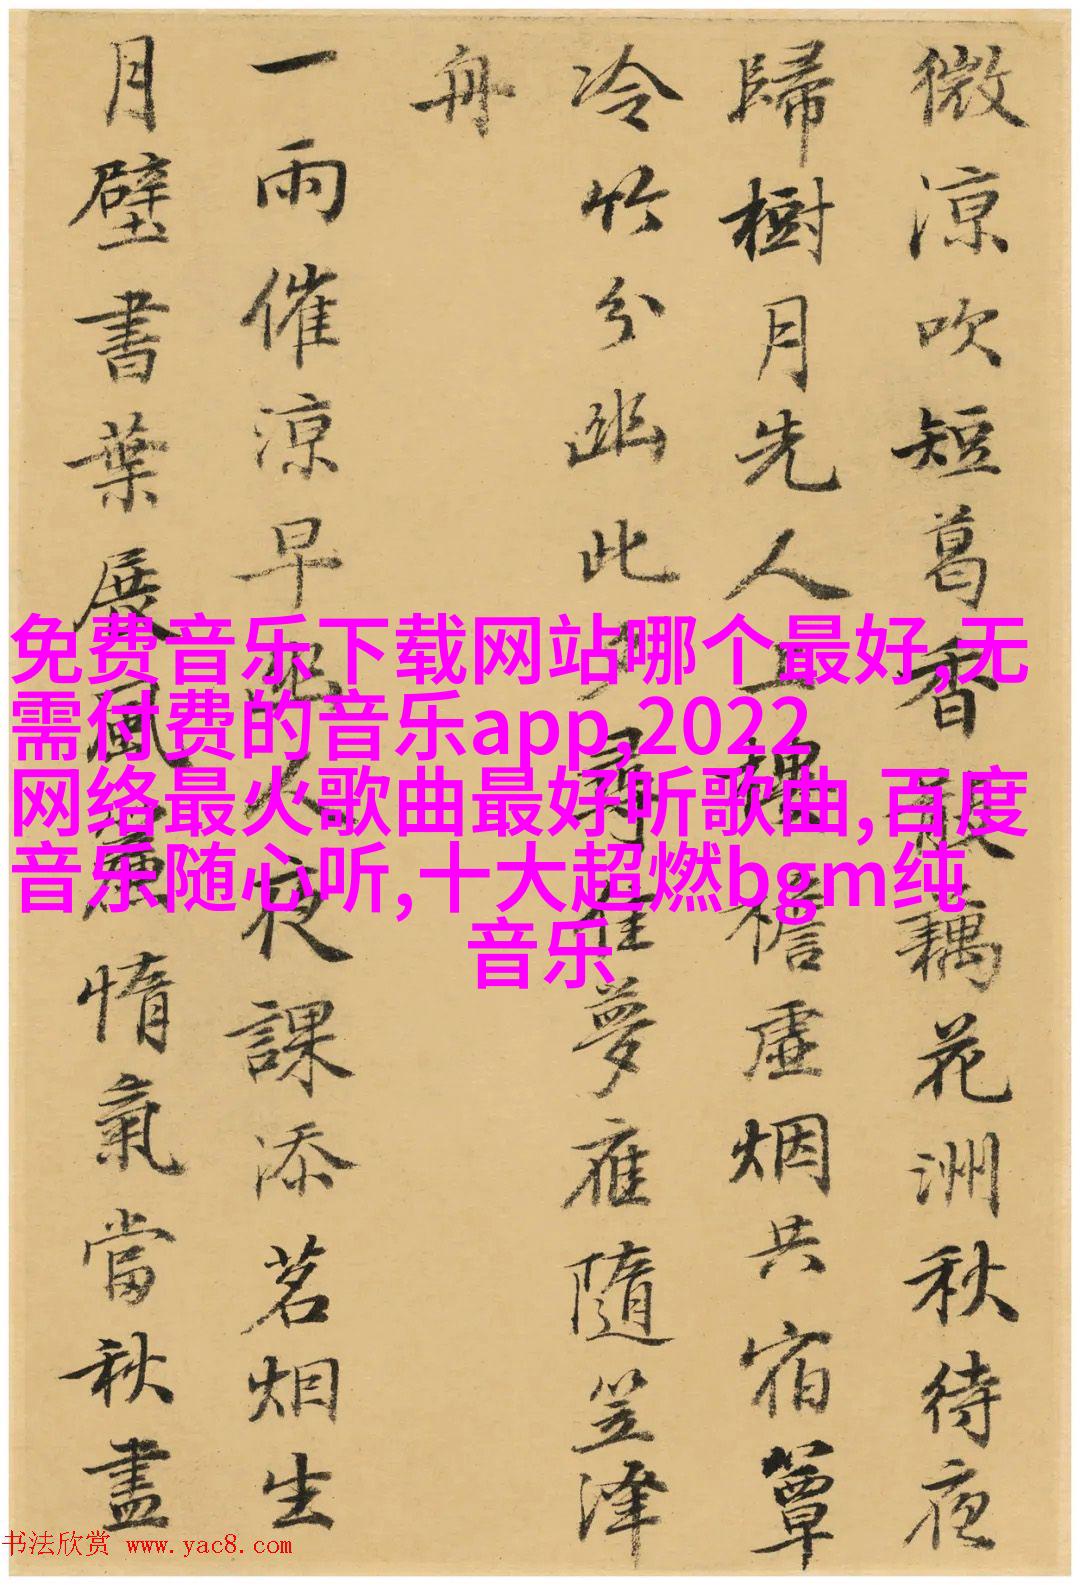 微涼吹短葛香散藕花洲秋待夜
歸樹月先人上樓檐虛烟共宿簟
冷竹分幽此
尋惟夢雁隨笠澤
舟
一雨催涼早
人夜課添茗烟生
月壁書葉展風
惰氣當秋盡
免费音乐下载网站哪个最好,无
需付费的音乐app,2022
网络最火歌曲最好听歌曲,百度
音乐随心听,十大超燃bgm纯
音乐
书法欣赏 www.yac8.com